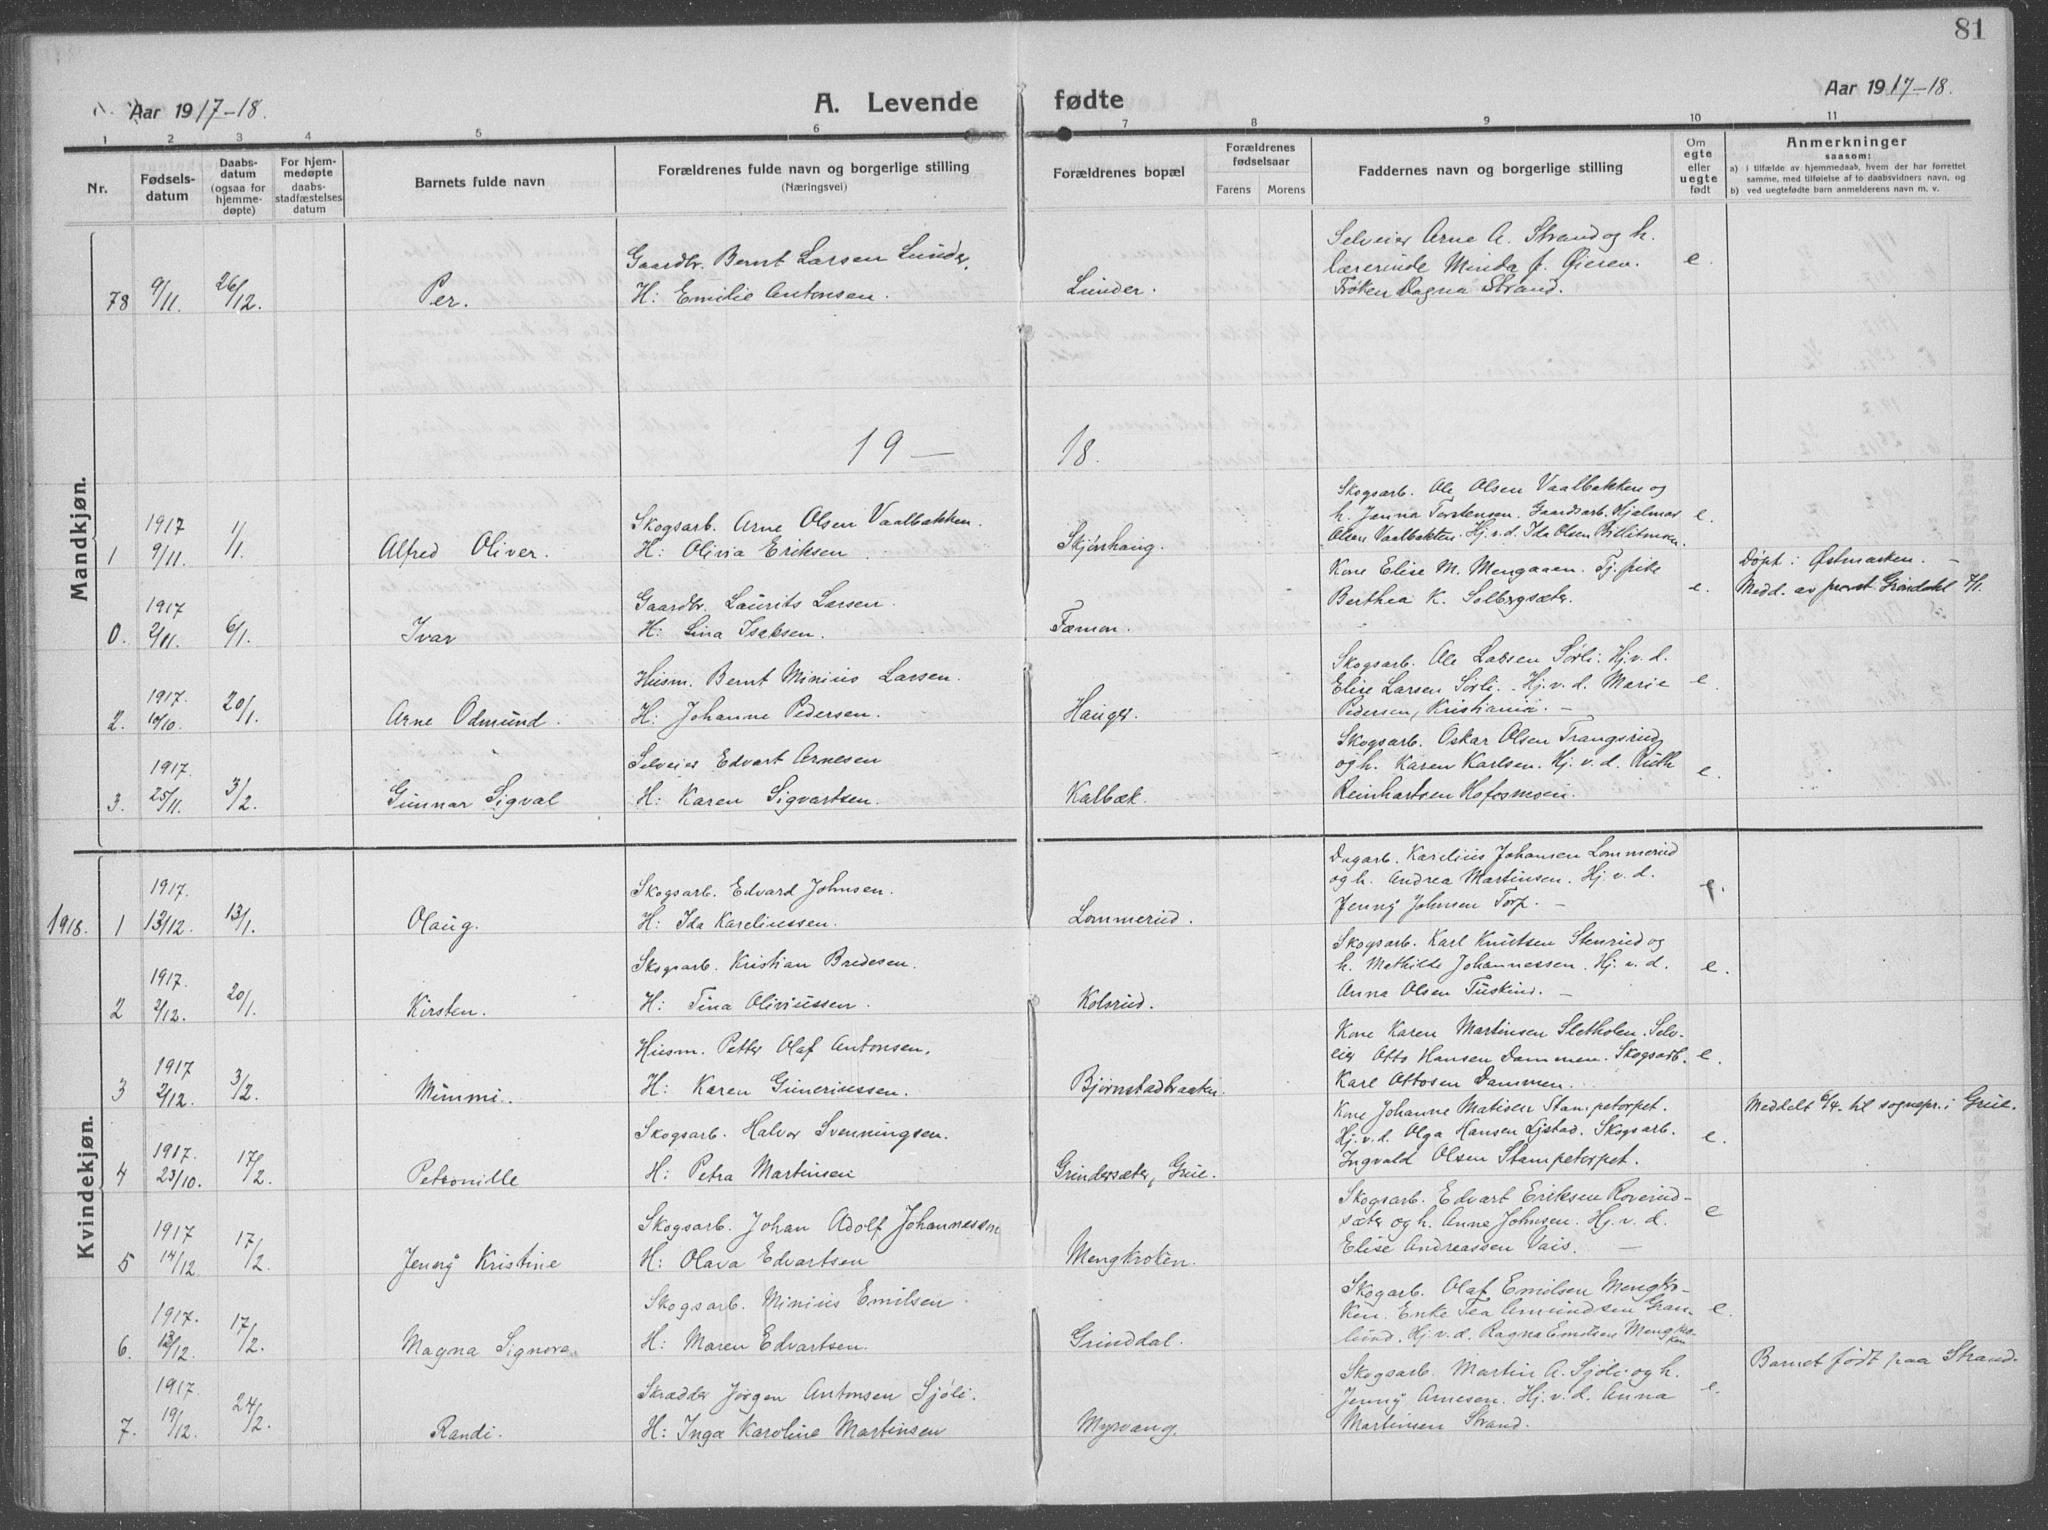 81
Aar 1917-18.
A. Levende fødte
Aar 1917-18.
1 2 3 4 5 6 7 8 9 10 11
Nr.
Fødsels-
datum
Daabs-
datum
(ogsaa for
hjemme-
døpte)
For hjem-
medøpte
daabs-
stadfæstelses
datum
Barnets fulde navn
Forældrenes fulde navn og borgerlige stilling
(Næringsvei)
Forældrenes bopæl
Forældrenes
fødselsaar
Farens Morens
Faddernes navn og borgerlige stilling
Om
egte
eller
uegte
født
Anmerkninger
saasom:
a) i tilfælde av hjemmedaab, hvem der har forrettet
samme, med tilføielse av to daabsvidners navn, og
b) ved uegtefødte barn anmelderens navn m. v.
Mandkjøn.
78 9/11. 26/12. Per.
Gaardbr. Bernt Larsen Lunder.
H: Emilie Antonsen.
Lunder.
Selveier Arne A. Strand og h.
lærerinde Minda f. Øieren.
Frøken Dagna Strand.
e.
19 — 18.
1 1917 9/11. 1/1. Alfred Oliver.
Skogsarb. Arne Olsen Vaalbakken.
H: Olivia Eriksen
Skjørshaug.
Skogsarb. Ole Olsen Vaalbakken og
h. Janna Torstensen. Gaardsarb. Hjalmar
Olsen Vaalbakken. Hj. v. d. Ida Olsen
e.
0. 1917 2/11. 6/1. Ivar
Gaardbr. Laurits Larsen.
H: Lina Isaksen.
Fæmon.
Kone Elise M. Mengaaen. Tj. pike
Berthea K. Solbergsæter.
e.
Døpt i Østmarken. —
Medd. av provst Grøndahl 7/1.
2. 1917. 10/10. 20/1. Arne Odmund.
Husm. Bernt Minius Larsen.
H: Johanne Pedersen.
Hauger.
Skogsarb. Ole Larsen Sørli. Hj. v. d.
Elise Larsen Sørli. Hj. v. d. Marie
Pedersen, Kristiania. —
e.
3. 1917. 25/11. 3/2. Gunnar Sigval
Selveier Edvart Arnesen
H: Karen Sigvartsen.
Kalbæk.
Skogsarb. Oskar Olsen Trangsrud
og h. Karen Karlsen. Hj. v. d. Ruth
Reinhartsen Hofosmoen.
e.
Kvindekjøn.
1918. 1 1917. 13/12. 13/1. Olaug.
Skogsarb. Edvard Johnsen.
H: Ida Kareliussen.
Lommerud.
Dagarb. Karelius Johansen Lommerud
og h. Andrea Martinsen. Hj. v. d.
Jenny Johnsen Torp. —
e.
2 1917. 2/12. 20/1. Kirsten.
Skogsarb. Kristian Bredesen.
H: Tina Oliviussen.
Kolsrud.
Skogsarb. Karl Knutsen Stenrud og
h. Mathilde Johannessen. Hj. v. d.
Anna Olsen Tuskind. —
e.
3 1917 2/12. 3/2. Mimmi.
Husm. Petter Olaf Antonsen.
H: Karen Guneriussen.
Bjørnstadbraaten.
Kone Karen Martinsen Sletholen. Selv-
eier Otto Hansen Dammen. Skogsarb.
Karl Ottosen Dammen.
e.
4 1917. 23/10. 17/2. Petronille
Skogsarb. Halvor Svenningsen.
H: Petra Martinsen
Grindersæter, Grue.
Kone Johanne Matisen Stampetorpet.
Hj. v. d. Olga Hansen Ljstad. Skogsarb.
Ingvald Olsen Stampetorpet.
e.
Meddelt 6/4. til sognepr. i Grue.
5 1917 14/12. 17/2. Jenny Kristine
Skogsarb. Johan Adolf Johannessen
H: Olava Edvartsen
Mengkroken.
Skogsarb. Edvart Eriksen Roverud-
sæter og h. Anne Johnsen. Hj. v. d.
Elise Andreassen Vais. —
e
6. 1917. 13/12. 17/2. Magna Signora.
Skogsarb. Minius Emilsen.
H: Maren Edvartsen.
Grinddal.
Skogarb. Olaf Emilsen Mengkro-
ken. Enke Tea Amundsen Gran-
lund. Hj. v. d. Ragna Emilsen Mengkro-
ken
e.
7. 1917 19/12. 24/2. Randi.
Skrædder Jørgen Antonsen Sjøli.
H: Inga Karoline Martinsen
Myrvang.
Skogsarb. Martin A. Sjøli og h.
Jenny Arnesen. Hj. v. d. Anna
Martinsen Strand.
e.
Barnet født paa Strand.